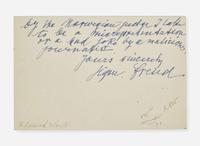 by the Norwegian judge I take
to be a misrepresentation
or a bad joke by a malicious
journalist.
Yours sincerely
Sigm. Freud